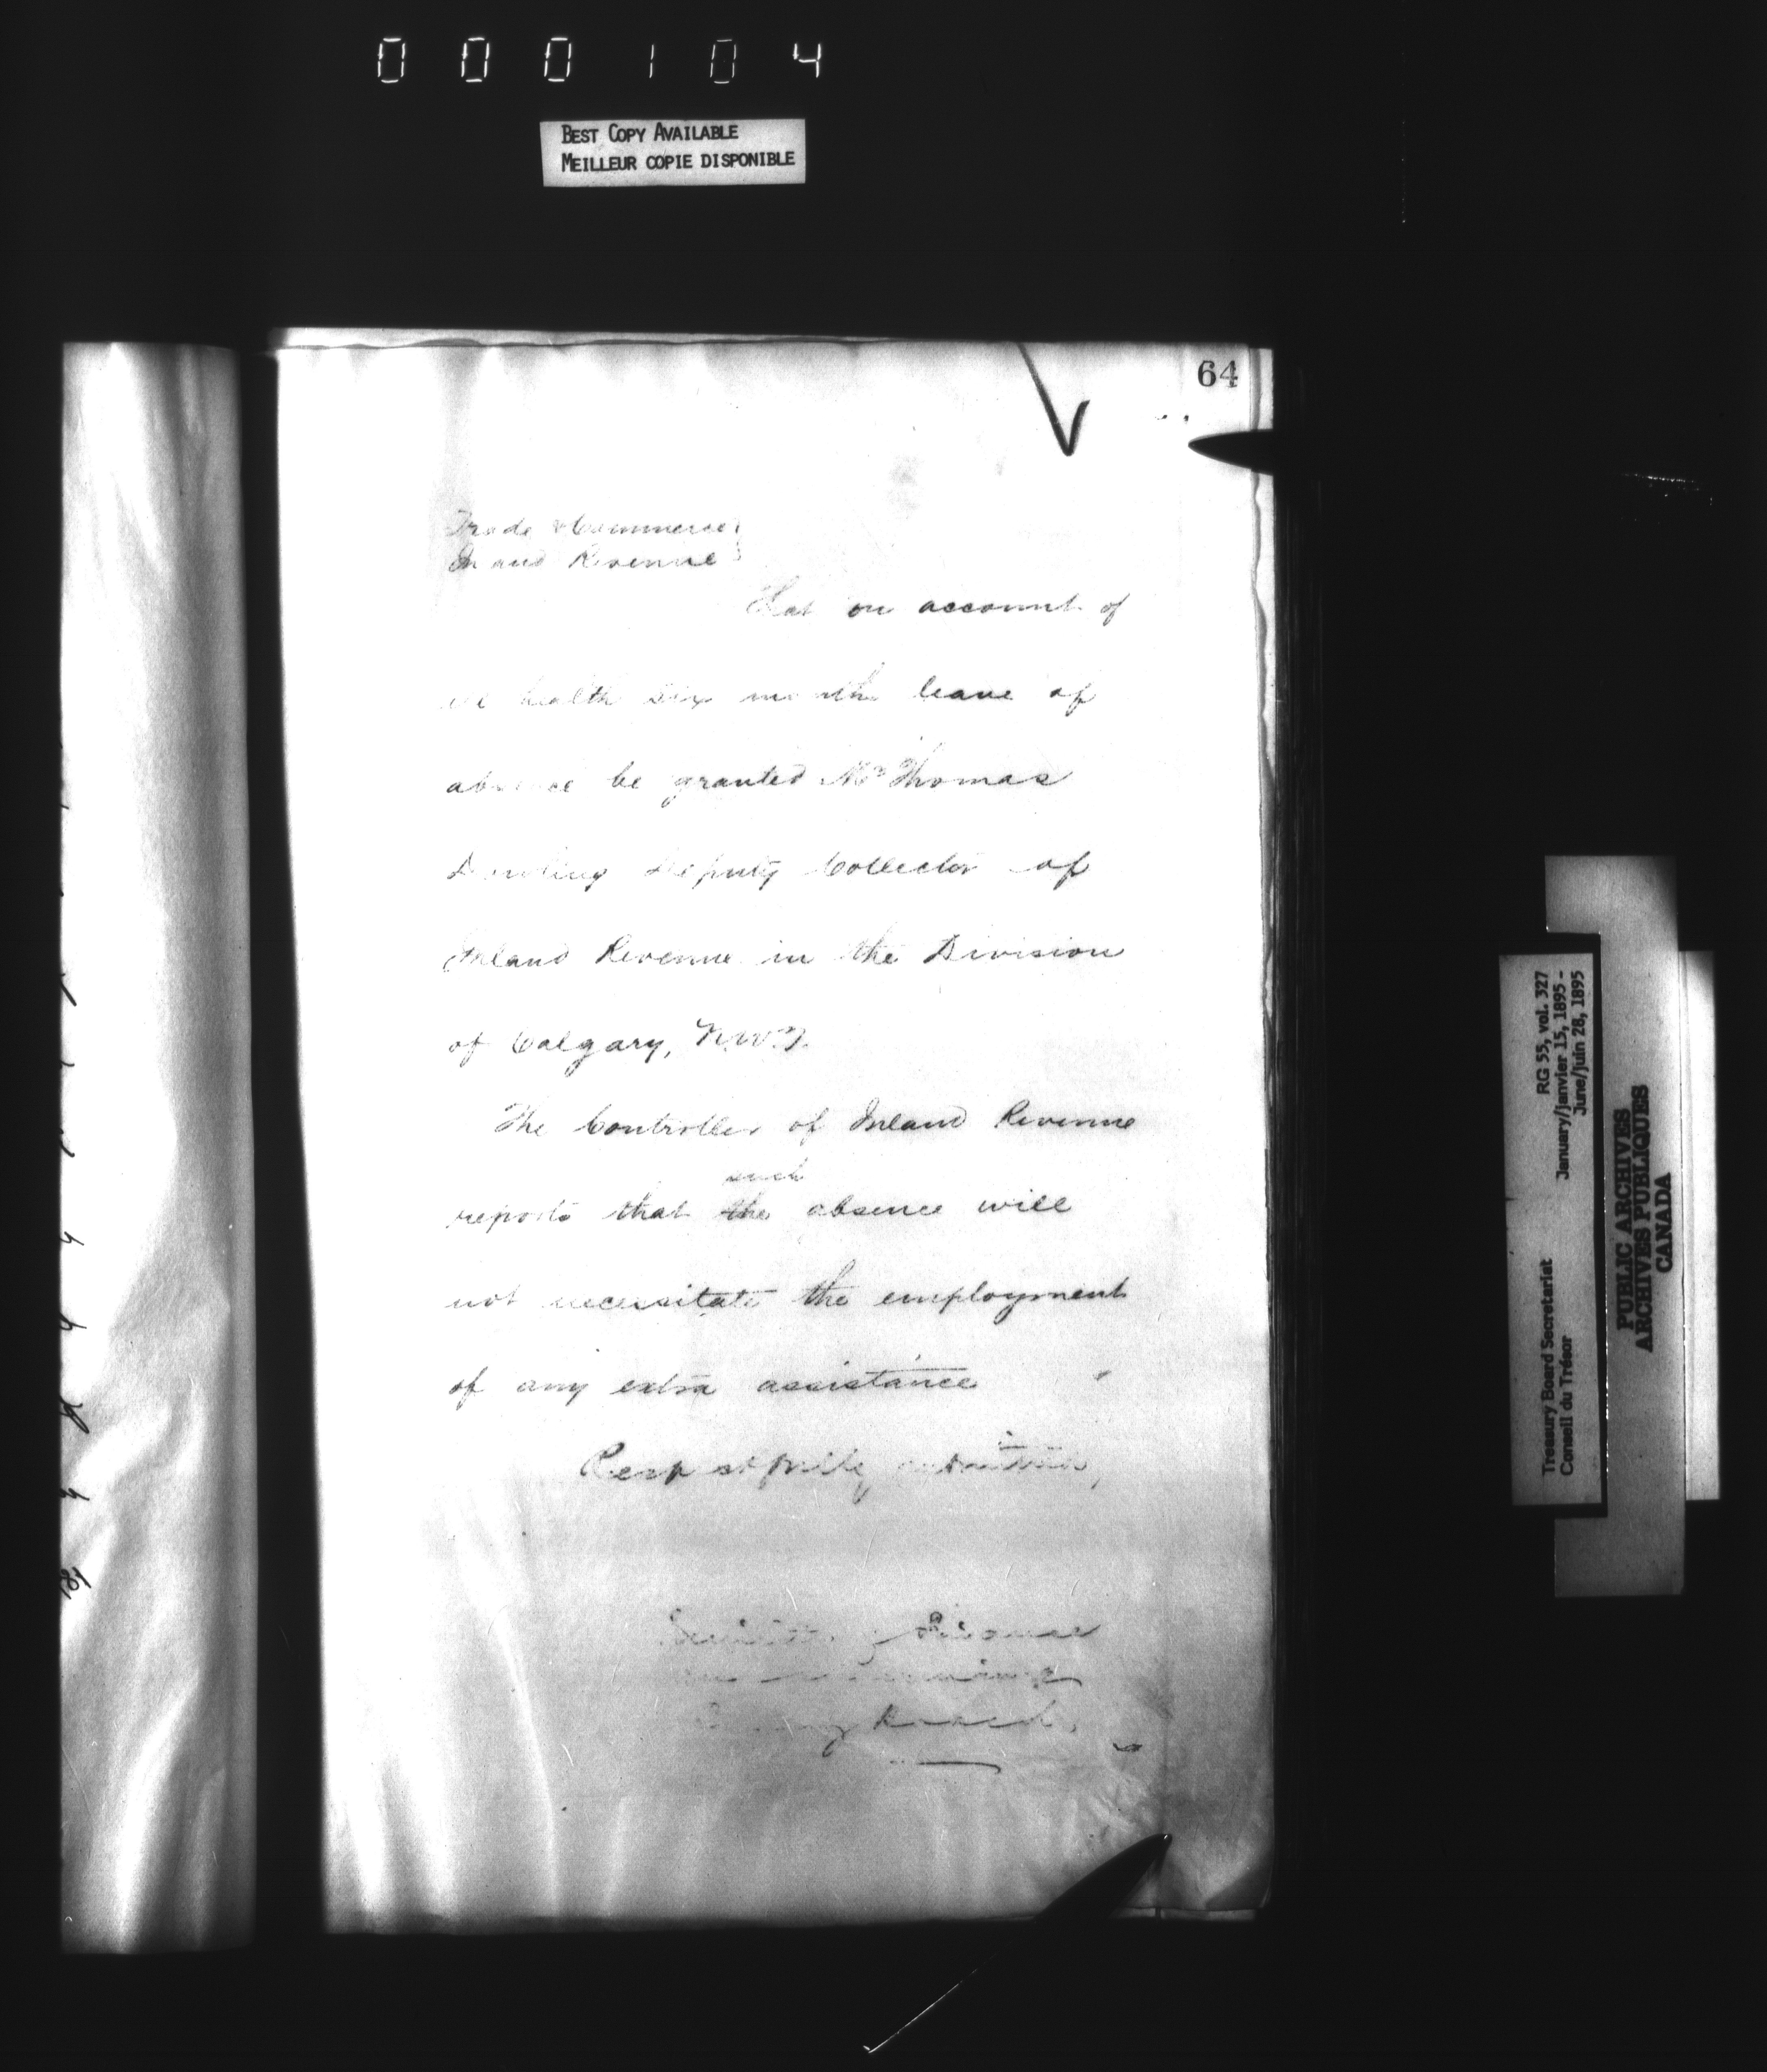 000104
BEST COPY AVAILABLE
MEILLEUR COPIE DISPONIBLE
64
Trade & Commerce
Inland Revenue
That on account of
ill health six months leave of
absence be granted Mr Thomas
Dowling Deputy Collector of
Inland Revenue in the Division
of Calgary, N.W.T.
The Controller of Inland Revenue
such
reports that the absence will
not necessitate the employment
of any extra assistance
Respectfully submitted,
Finance
Board
RG 55, vol. 327
January/janvier 15, 1895 -
June/juin 28, 1895
Treasury Board Secretariat
Conseil du Trésor
PUBLIC ARCHIVES
ARCHIVES PUBLIQUES
CANADA